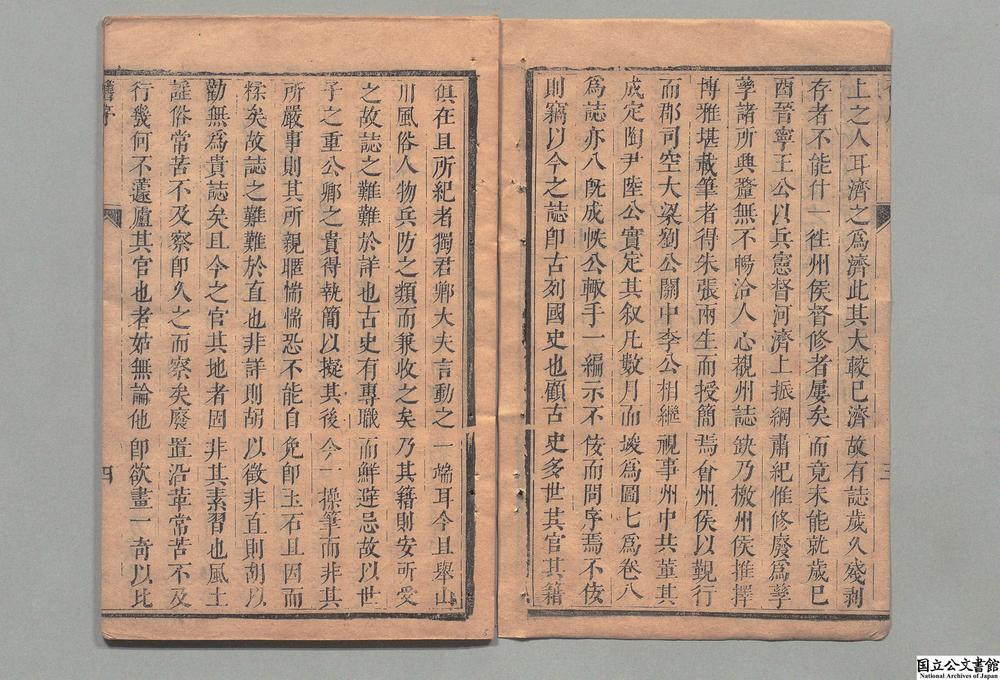 上之人耳濟之爲濟此其大較已濟故有誌歲久殘剥
存者不能什一徃州侯督修者屢矣而竟未能就歲巳
酉晉寧王公以兵憲督河濟上振綱肅紀惟修廢爲孳
孳諸所興釐無不暢洽人心覩州誌缺乃檄州侯推擇
博雅堪載筆者得朱張兩生而授簡焉會州侯以覲行
而郡司空大梁劉公關中李公相繼視事州中共董其
成定陶尹陸公實定其叙凡數月而竣爲圖七爲卷八
爲誌亦八旣成帙公輙手一編示不佞而問序焉不佞
則竊以今之誌卽古列國史也顧古史多世其官其籍
俱在且所紀者獨君卿大夫言動之一端耳今且舉山
川風俗人物兵防之類而兼收之矣乃其籍則安所受
之故誌之難難於詳也古史有專職而鮮避忌故以世
子之重公卿之貴得執簡以擬其後今一操筆而非其
所嚴事則其所親暱惴惴恐不能自免卽玉石且因而
糅矣故誌之難難於直也非詳則胡以徵非直則胡以
勸無爲貴誌矣且今之官其地者固非其素習也風土
謡俗常苦不及察卽久之而察矣廢置沿革常苦不及
行幾何不蘧廬其官也者姑無論他卽欲畫一奇以比
舊序
四
三
国立公文書館
National Archives of Japan